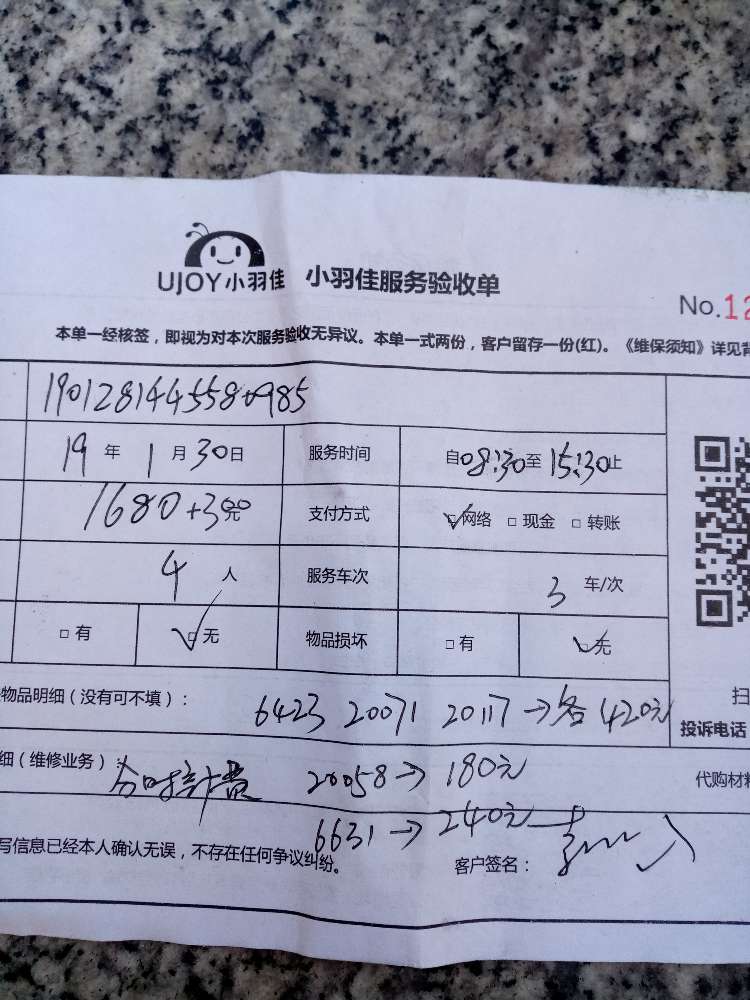 UJOY小羽佳 小羽佳服务验收单
No.12
本单一经核签，即视为对本次服务验收无异议。本单一式两份，客户留存一份(红)。《维保须知》详见背
190128144558
19年1月30日 服务时间 自08:30至15:30止
1680+300元 支付方式 网络 □现金 □转账
4人 服务车次 3车/次
□有 □无 物品损坏 □有 □无
物品明细（没有可不填）： 6423 20071 20117→各420元
扫
投诉电话
细（维修业务）： 分时计费 20058→180元
代购材料
6631→240元
写信息已经本人确认无误，不存在任何争议纠纷。 客户签名：